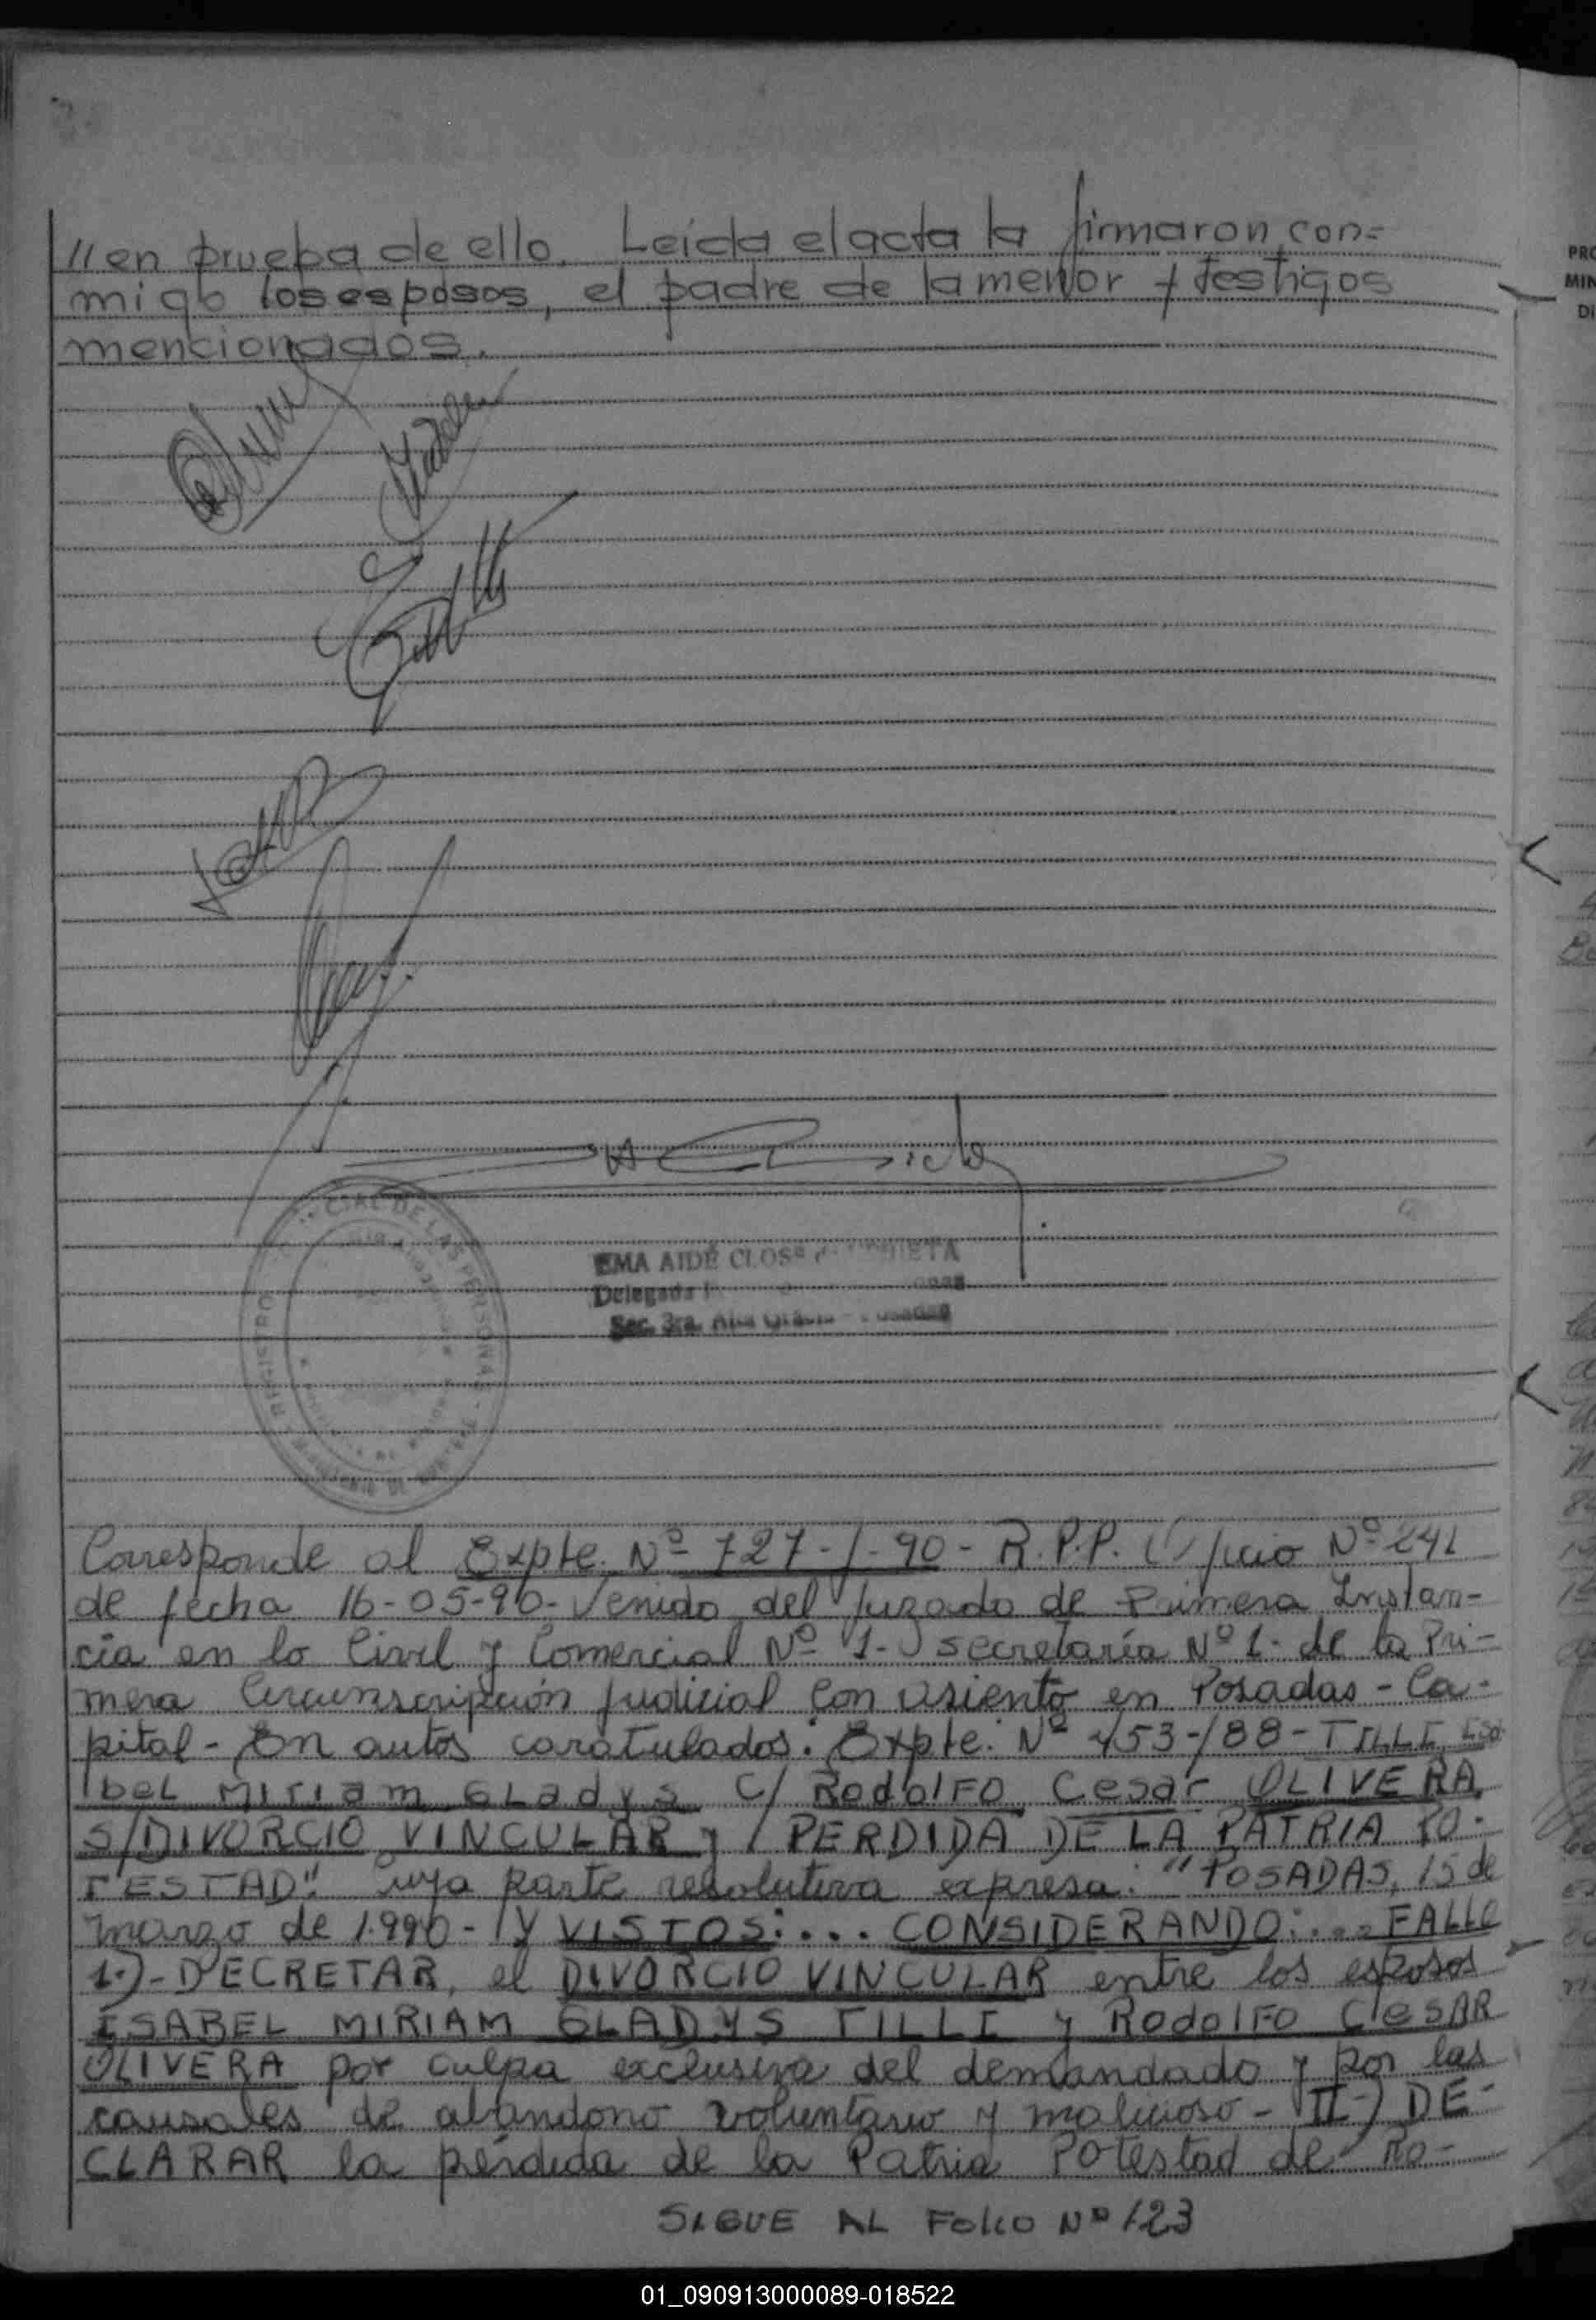 //en prueba de ello. Leída el acta la firmaron con=
migo los esposos, el padre de la menor y testigos
mencionados.
EMA AIDÉ CLOS
Delegada
Sec. 3ra. Alta Gracia - Posadas
REGISTRO DE LAS PERSONAS
Corresponde al Expte. Nº 727-/-90- R.P.P. Oficio Nº 241
de fecha 16-05-90- Venido del Juzgado de Primera Instan-
cia en lo Civil y Comercial Nº 1- secretaría Nº 1- de la Pri-
mera Circunscripción Judicial con asiento en Posadas - Ca-
pital - En autos caratulados: Expte. Nº 453-/88- TILLI, Isa
bel Miriam Gladys c/ Rodolfo Cesar OLIVERA
S/DIVORCIO VINCULAR y / PERDIDA DE LA PATRIA PO-
TESTAD". cuya parte resolutiva expresa: "POSADAS, 15 de
marzo de 1.990- Y VISTOS:... CONSIDERANDO:... FALLO
1-)- DECRETAR, el DIVORCIO VINCULAR entre los esposos
ISABEL MIRIAM GLADYS TILLI y Rodolfo CesAR
OLIVERA por culpa exclusiva del demandado y por las
causales de abandono voluntario y malicioso - II-) DE-
CLARAR la pérdida de la Patria Potestad de Ro-
SIGUE AL Folio Nº 123
PRO
MIN
DI
01_090913000089-018522